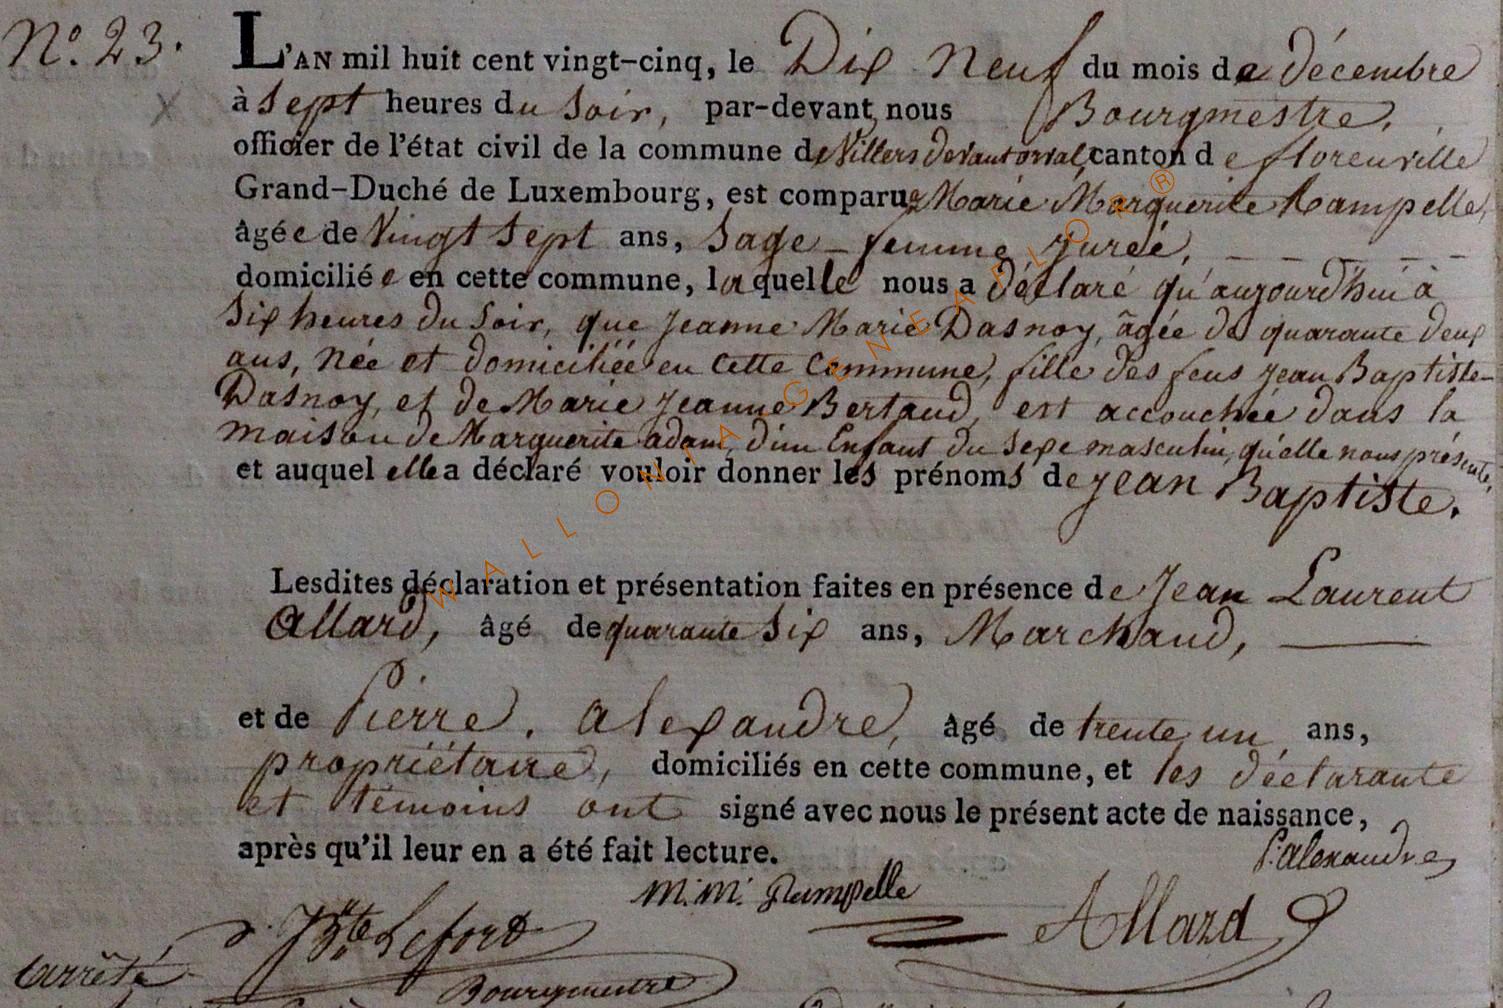 N.° 23.
L'AN mil huit cent vingt-cinq, le Dix Neuf du mois de décembre
à sept heures du Soir, par-devant nous Bourgmestre,
officier de l'état civil de la commune de Villers devant orval, canton de florenville
Grand-Duché de Luxembourg, est comparue Marie Marguerite Rampelle,
âgée de Vingt Sept ans, Sage-femme Jurée,
domiciliée en cette commune, laquelle nous a déclaré qu'aujourd'hui à
Six heures du Soir, que Jeanne Marie Dasnoy, âgée de quarante deux
ans, née et domiciliée en Cette Commune, fille des feus Jean Baptiste
Dasnoy, et de Marie Jeanne Bertaud, est accouchée dans la
maison de Marguerite adam, d'un Enfant du Sexe masculin, qu'elle nous présente,
et auquel elle a déclaré vouloir donner les prénoms de Jean Baptiste.
Lesdites déclaration et présentation faites en présence de Jean Laurent
Allard, âgé de quarante Six ans, Marchand,
et de Pierre, alexandre, âgé de trente un ans,
propriétaire, domiciliés en cette commune, et les déclarante
et témoins ont signé avec nous le présent acte de naissance,
après qu'il leur en a été fait lecture.
P. alexandre
M. M. Rampelle
Allard
J. Bte Lefort
Bourgmestre
arrêté
WALLONIA GENEAFLOR ®